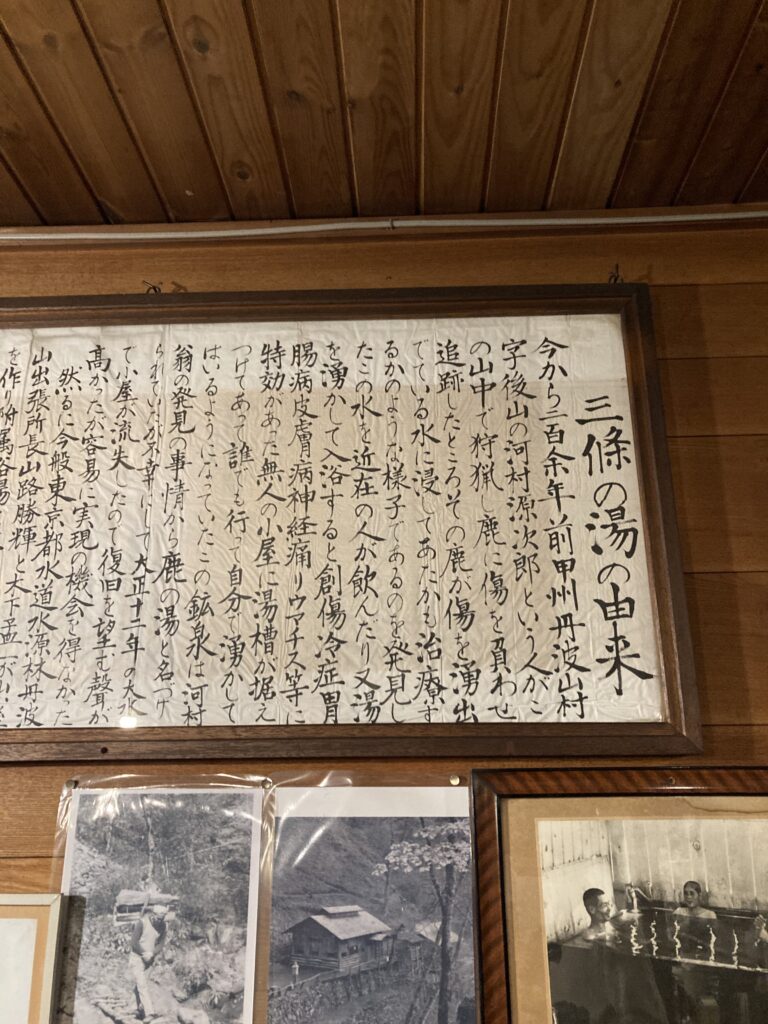 三條の湯の由来
今から二百余年前甲州丹波山村
字後山の河村源次郎という人がこ
の山中で狩猟し鹿に傷を負わせ
追跡したところその鹿が傷を湧出
でている水に浸してあたかも治療す
るかのような様子であるのを発見し
たこの水を近在の人が飲んだり又湯
を湧かして入浴すると創傷冷症胃
腸病皮膚病神経痛リウマチス等に
特効があった無人の小屋に湯槽が据え
つけてあって誰でも行って自分で湧かして
はいるようになっていたこの鉱泉は河村
翁の発見の事情から鹿の湯と名づけ
られていたが不幸にして大正十二年の大水
で小屋が流失したので復旧を望む聲が
高かったが容易に実現の機会を得なかった
然るに今般東京都水道水源林丹波
山出張所長山路勝輝と木下孟一が
を作り附属浴場